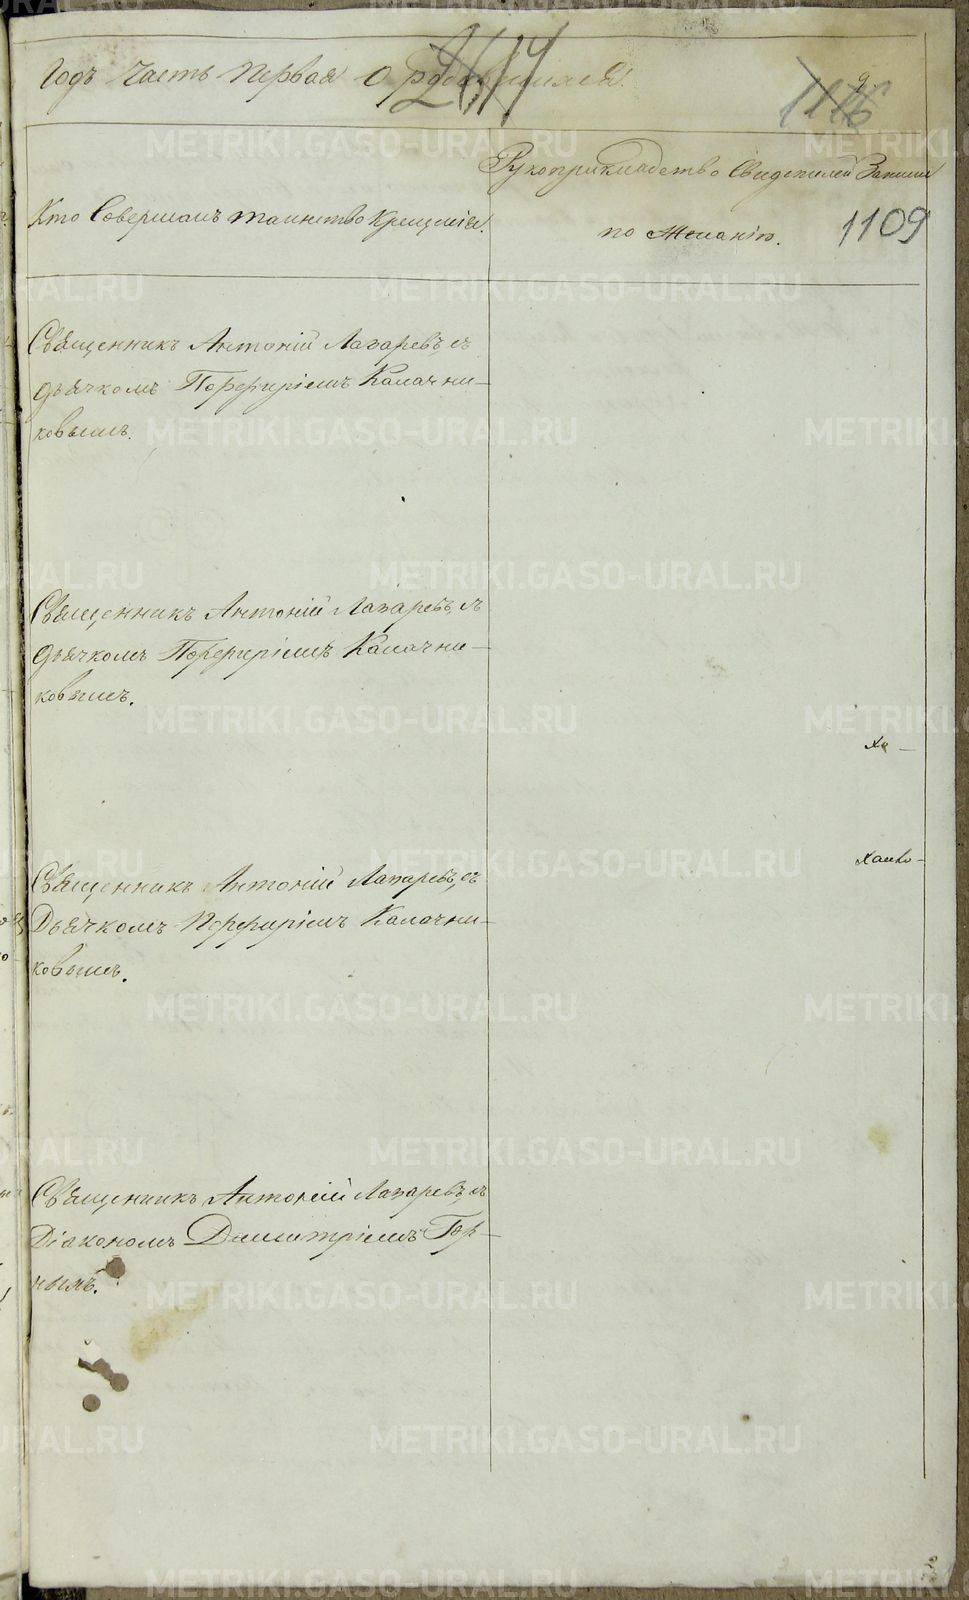 Годъ Часть Первая О родившихся.
1114
1116
9.
Кто Совершалъ таинство Крещенія.
Рукоприкладство Свидетелей Записи
по Желанію.
1109
Священникъ Антоній Лазаревъ съ
дьячкомъ Порфиріемъ Калачни-
ковымъ.
Священникъ Антоній Лазаревъ, съ
дьячкомъ Порфиріемъ Калачни-
ковымъ.
Священникъ Антоній Лазаревъ, съ
Дьячкомъ Порфиріемъ Калачни-
ковымъ.
Священникъ Антоній Лазаревъ, съ
Діакономъ Димитріемъ Гор-
нымъ.
METRIKI.GASO-URAL.RU